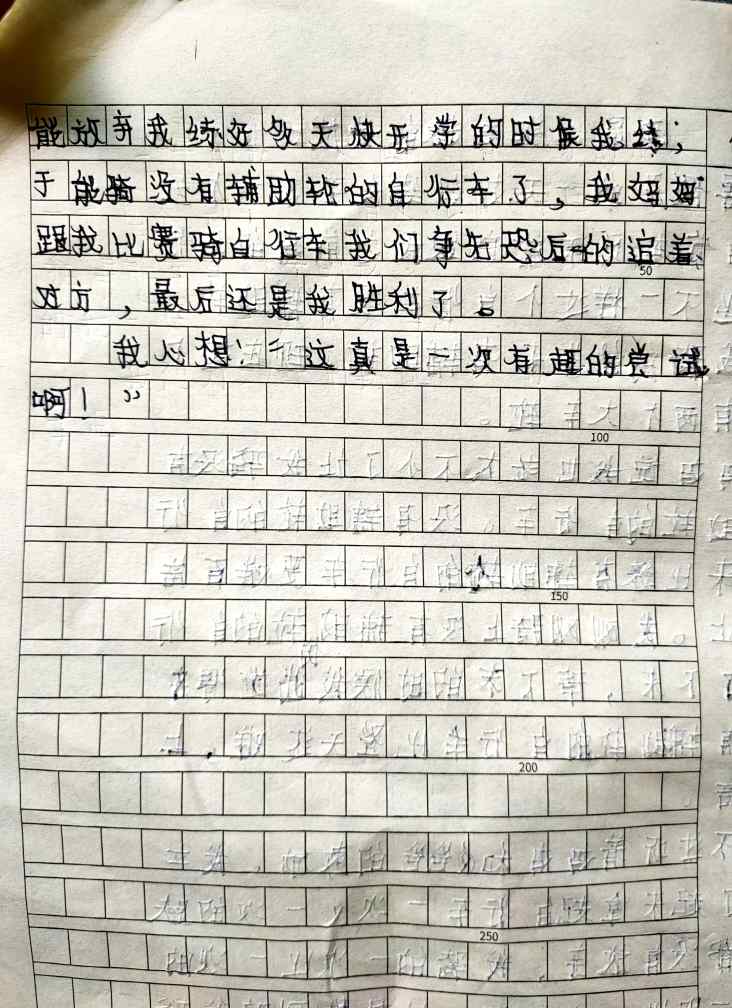 能放弃我练好多天快开学的时候我终
于能骑没有辅助轮的自行车了，我妈妈
跟我比赛骑自行车我们争先恐后的追着
对方，最后还是我胜利了。
50
我心想：“这真是一次有趣的尝试
啊！”
100
150
200
250